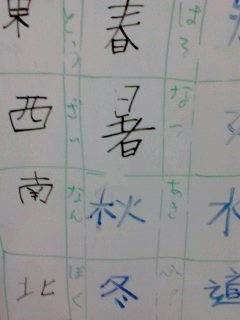 東 とう 春 はる
西 暑 なつ
南 なん 秋 あき 水
北 ほく 冬 道